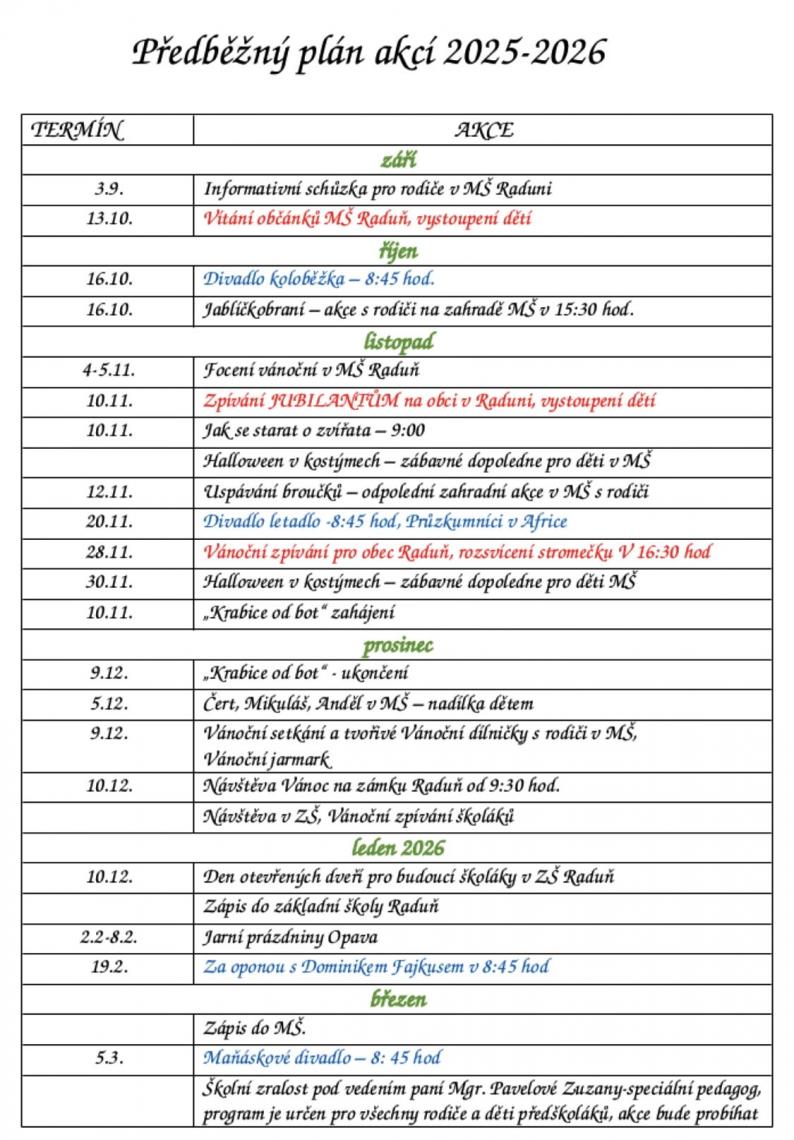 Předběžný plán akcí 2025-2026
TERMÍN AKCE
září
3.9. Informativní schůzka pro rodiče v MŠ Raduni
13.10. Vítání občánků MŠ Raduň, vystoupení dětí
říjen
16.10. Divadlo koloběžka – 8:45 hod.
16.10. Jablíčkobraní – akce s rodiči na zahradě MŠ v 15:30 hod.
listopad
4-5.11. Focení vánoční v MŠ Raduň
10.11. Zpívání JUBILANTŮM na obci v Raduni, vystoupení dětí
10.11. Jak se starat o zvířata – 9:00
Halloween v kostýmech – zábavné dopoledne pro děti v MŠ
12.11. Uspávání broučků – odpolední zahradní akce v MŠ s rodiči
20.11. Divadlo letadlo -8:45 hod, Průzkumníci v Africe
28.11. Vánoční zpívání pro obec Raduň, rozsvícení stromečku V 16:30 hod
30.11. Halloween v kostýmech – zábavné dopoledne pro děti MŠ
10.11. „Krabice od bot“ zahájení
prosinec
9.12. „Krabice od bot“ - ukončení
5.12. Čert, Mikuláš, Anděl v MŠ – nadílka dětem
9.12. Vánoční setkání a tvořivé Vánoční dílničky s rodiči v MŠ,
Vánoční jarmark
10.12. Návštěva Vánoc na zámku Raduň od 9:30 hod.
Návštěva v ZŠ, Vánoční zpívání školáků
leden 2026
10.12. Den otevřených dveří pro budoucí školáky v ZŠ Raduň
Zápis do základní školy Raduň
2.2-8.2. Jarní prázdniny Opava
19.2. Za oponou s Dominikem Fajkusem v 8:45 hod
březen
Zápis do MŠ.
5.3. Maňáskové divadlo – 8: 45 hod
Školní zralost pod vedením paní Mgr. Pavelové Zuzany-speciální pedagog,
program je určen pro všechny rodiče a děti předškoláků, akce bude probíhat